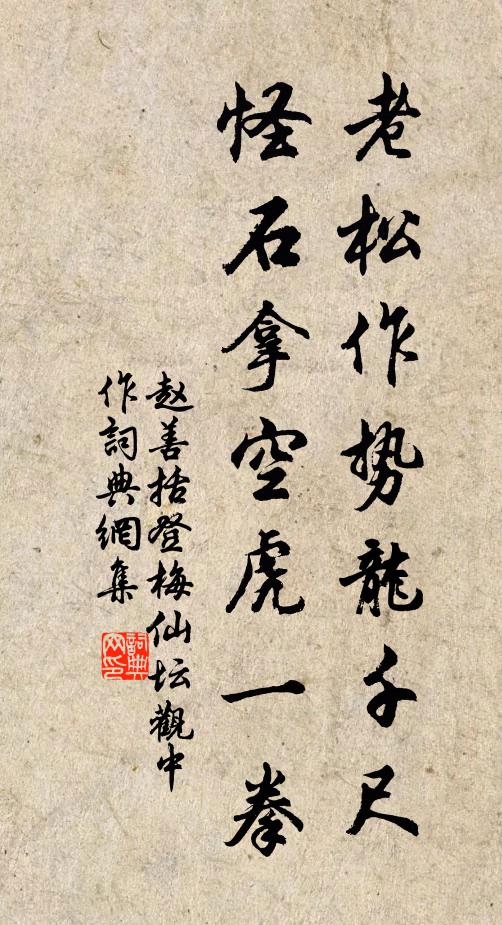 老松作势龍千尺
怪石拿空虎一拳
赵善括登梅仙坛觀中
作詞典網集
詞典
网印